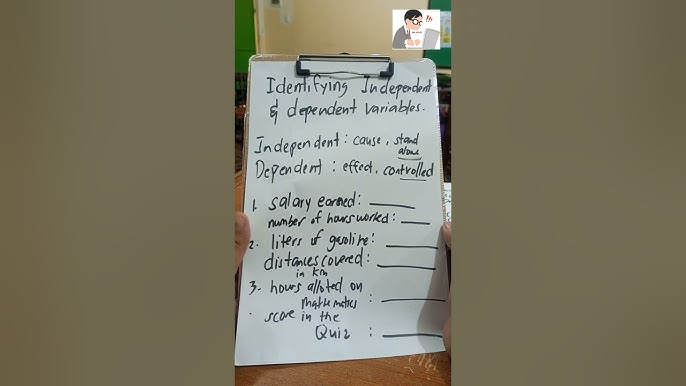 Identifying Independent
& dependent variables.
Independent : cause, stand
alone
Dependent : effect, controlled
1. salary earned: ____
number of hours worked: ____
2. liters of gasoline: ____
distances covered: ____
in km
3. hours alloted on
mathematics : ____
. score in the
Quiz : ____